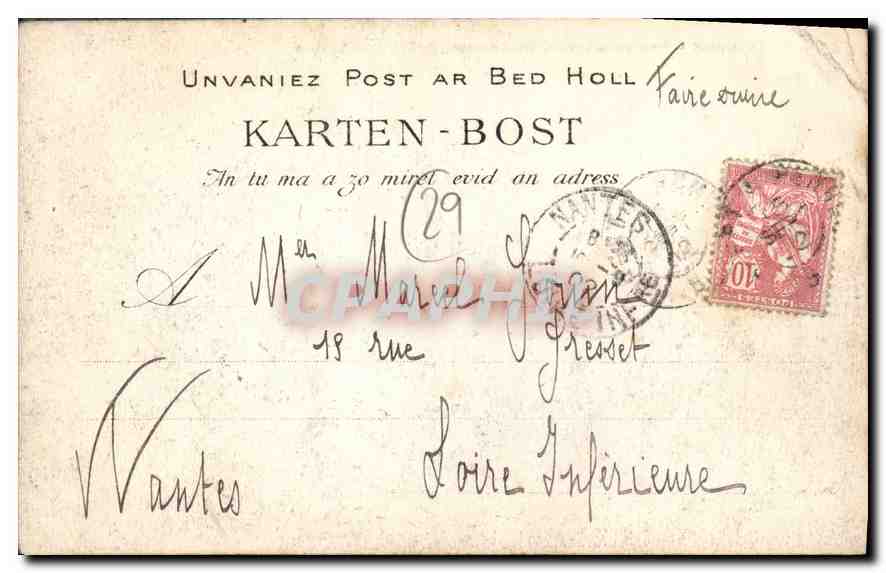 UNVANIEZ POST AR BED HOLL
Faire suivre
KARTEN-BOST
An tu ma a zo miret evid an adress
29
NANTES
A Mr Marcel
CPARAMA
19 rue Gresset
10
Nantes
Loire Inférieure